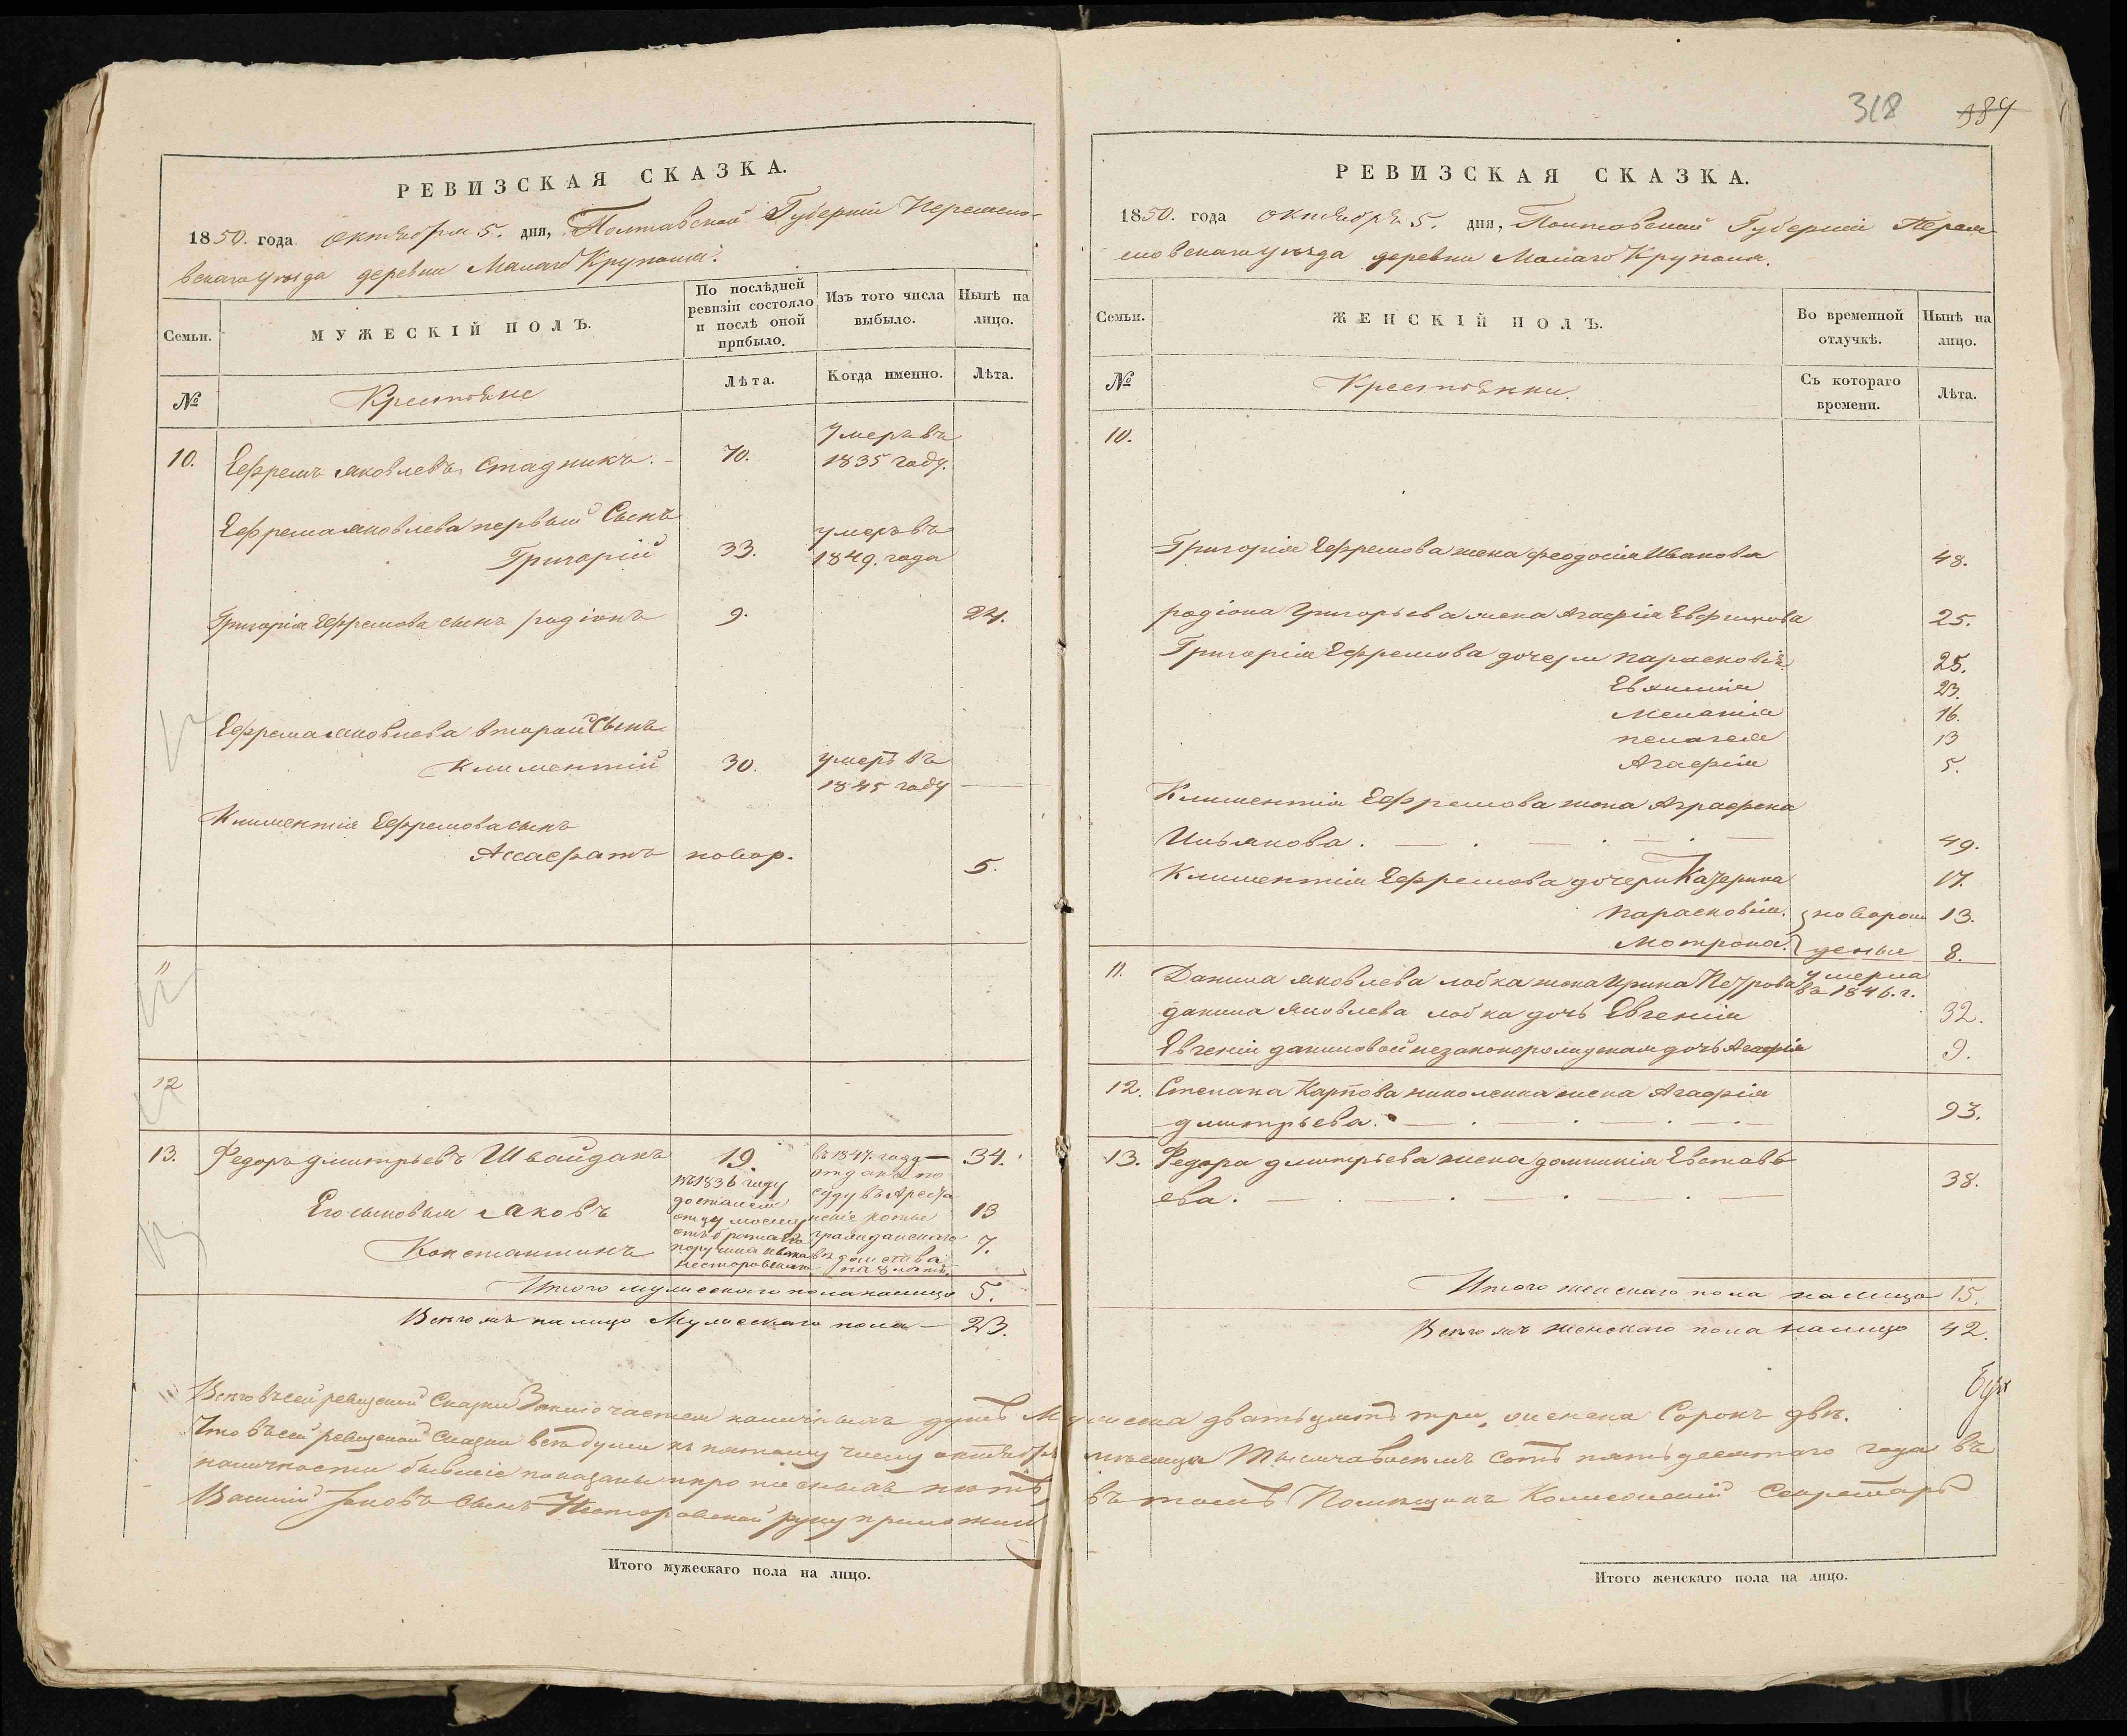 РЕВИЗСКАЯ СКАЗКА.
1850. года октября 5. дня, Полтавской Губерніи Переясло-
вскаго уѣзда деревни Малаго Крупола.
Семьи.
МУЖЕСКІЙ ПОЛЪ.
По послѣдней ревизіи состояло и послѣ оной прибыло.
Изъ того числа выбыло.
Нынѣ на лицо.
№
Крестьяне
Лѣта.
Когда именно.
Лѣта.
10. Ефремъ Яковлевъ Стадникъ. 70. умеръ въ
1835 году.
Ефрема Яковлева первый Сынъ
Григорій 33. умеръ въ
1849. года
Григорія Ефремова сынъ родіонъ 9. 24.
Ефрема Яковлева второй Сынъ
Климентій 30. умеръ въ
1845 году
Климентія Ефремова сынъ
Ассафатъ новор. 5.
11
12
13. Федоръ дмитрьевъ Швайданъ 19. въ 1847. году 34.
въ 1836 году
достался
отцу моему
отъ брата
отдань по
суду въ Ареста
нскіе роты
гражданскаго
вѣдомства
Его сыновья Яковъ 13
Константинъ 7.
Итого мужескаго пола налицо 5.
Всего жъ на лицо Мужескаго пола 23.
318
384
РЕВИЗСКАЯ СКАЗКА.
1850. года октября 5. дня, Полтавской Губерніи Переяс
словскаго уѣзда деревни Малаго Крупола.
Семьи.
ЖЕНСКІЙ ПОЛЪ.
Во временной отлучкѣ.
Нынѣ на лицо.
№
Крестьянки.
Съ котораго времени.
Лѣта.
10.
Григорія Ефремова жена феодосія Иванова 48.
родіона Григорьева жена Агафія Евфимова 25.
Григорія Ефремова дочери парасковія 25.
Евхимія 23.
Меланія 16.
пелагея 13
Агафія 5.
Климентія Ефремова жена Аграфена
Ильякова. 49.
Климентія Ефремова дочери Катерина 17.
парасковія. новорож 13.
Мотрона. деные 8.
11. Данила Яковлева лобка жена Ирина Петрова умерла
въ 1846. г.
данила Яковлева лобка дочь Евгенія 32.
Евгеніи даниловой незаконорожденая дочь Агафія 9.
12. Степана Карпова николенка жена Агафія
дмитрьева. 93.
13. Федора дмитрьева жена домникія Евставь
ева. 38.
Итого женскаго пола налицо 15.
Всего жъ женскаго пола налицо 42.
Всего въ сей ревизской Сказки Заключается наличныхъ душъ Мужеска двадцать три, и женска Сорокъ двѣ.
Что въ сей ревизской Сказки всѣ души къ пятому числу октября мѣсяца Тысяча восемь сотъ пятьдесятаго года въ
наличности бывшіе показаны и прописныхъ нѣтъ, въ томъ Помѣщикъ Колежскій Секретарь
Василій Яковъ Сынъ Несторовскій руку приложилъ
Итого мужескаго пола на лицо.
Итого женскаго пола на лицо.